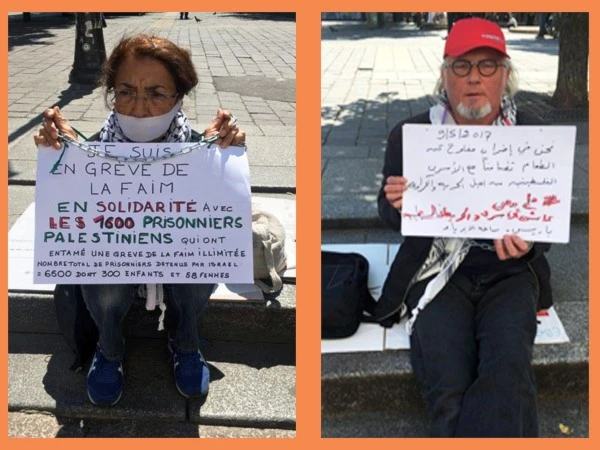 JE SUIS
EN GRÈVE DE
LA FAIM
EN SOLIDARITÉ AVEC
LES 1600 PRISONNIERS
PALESTINIENS QUI ONT
ENTAMÉ UNE GREVE DE LA FAIM ILLIMITÉE
NOMBRE TOTAL DE PRISONNIERS DETENUS PAR ISRAEL
= 6500 DONT 300 ENFANTS ET 58 FEMMES
9/5/2017
نحن في إضراب مفتوح عن
الطعام تضامنا مع الأسرى
الفلسطينيين من اجل الحرية والكرامة
باريس. ساحة الأو